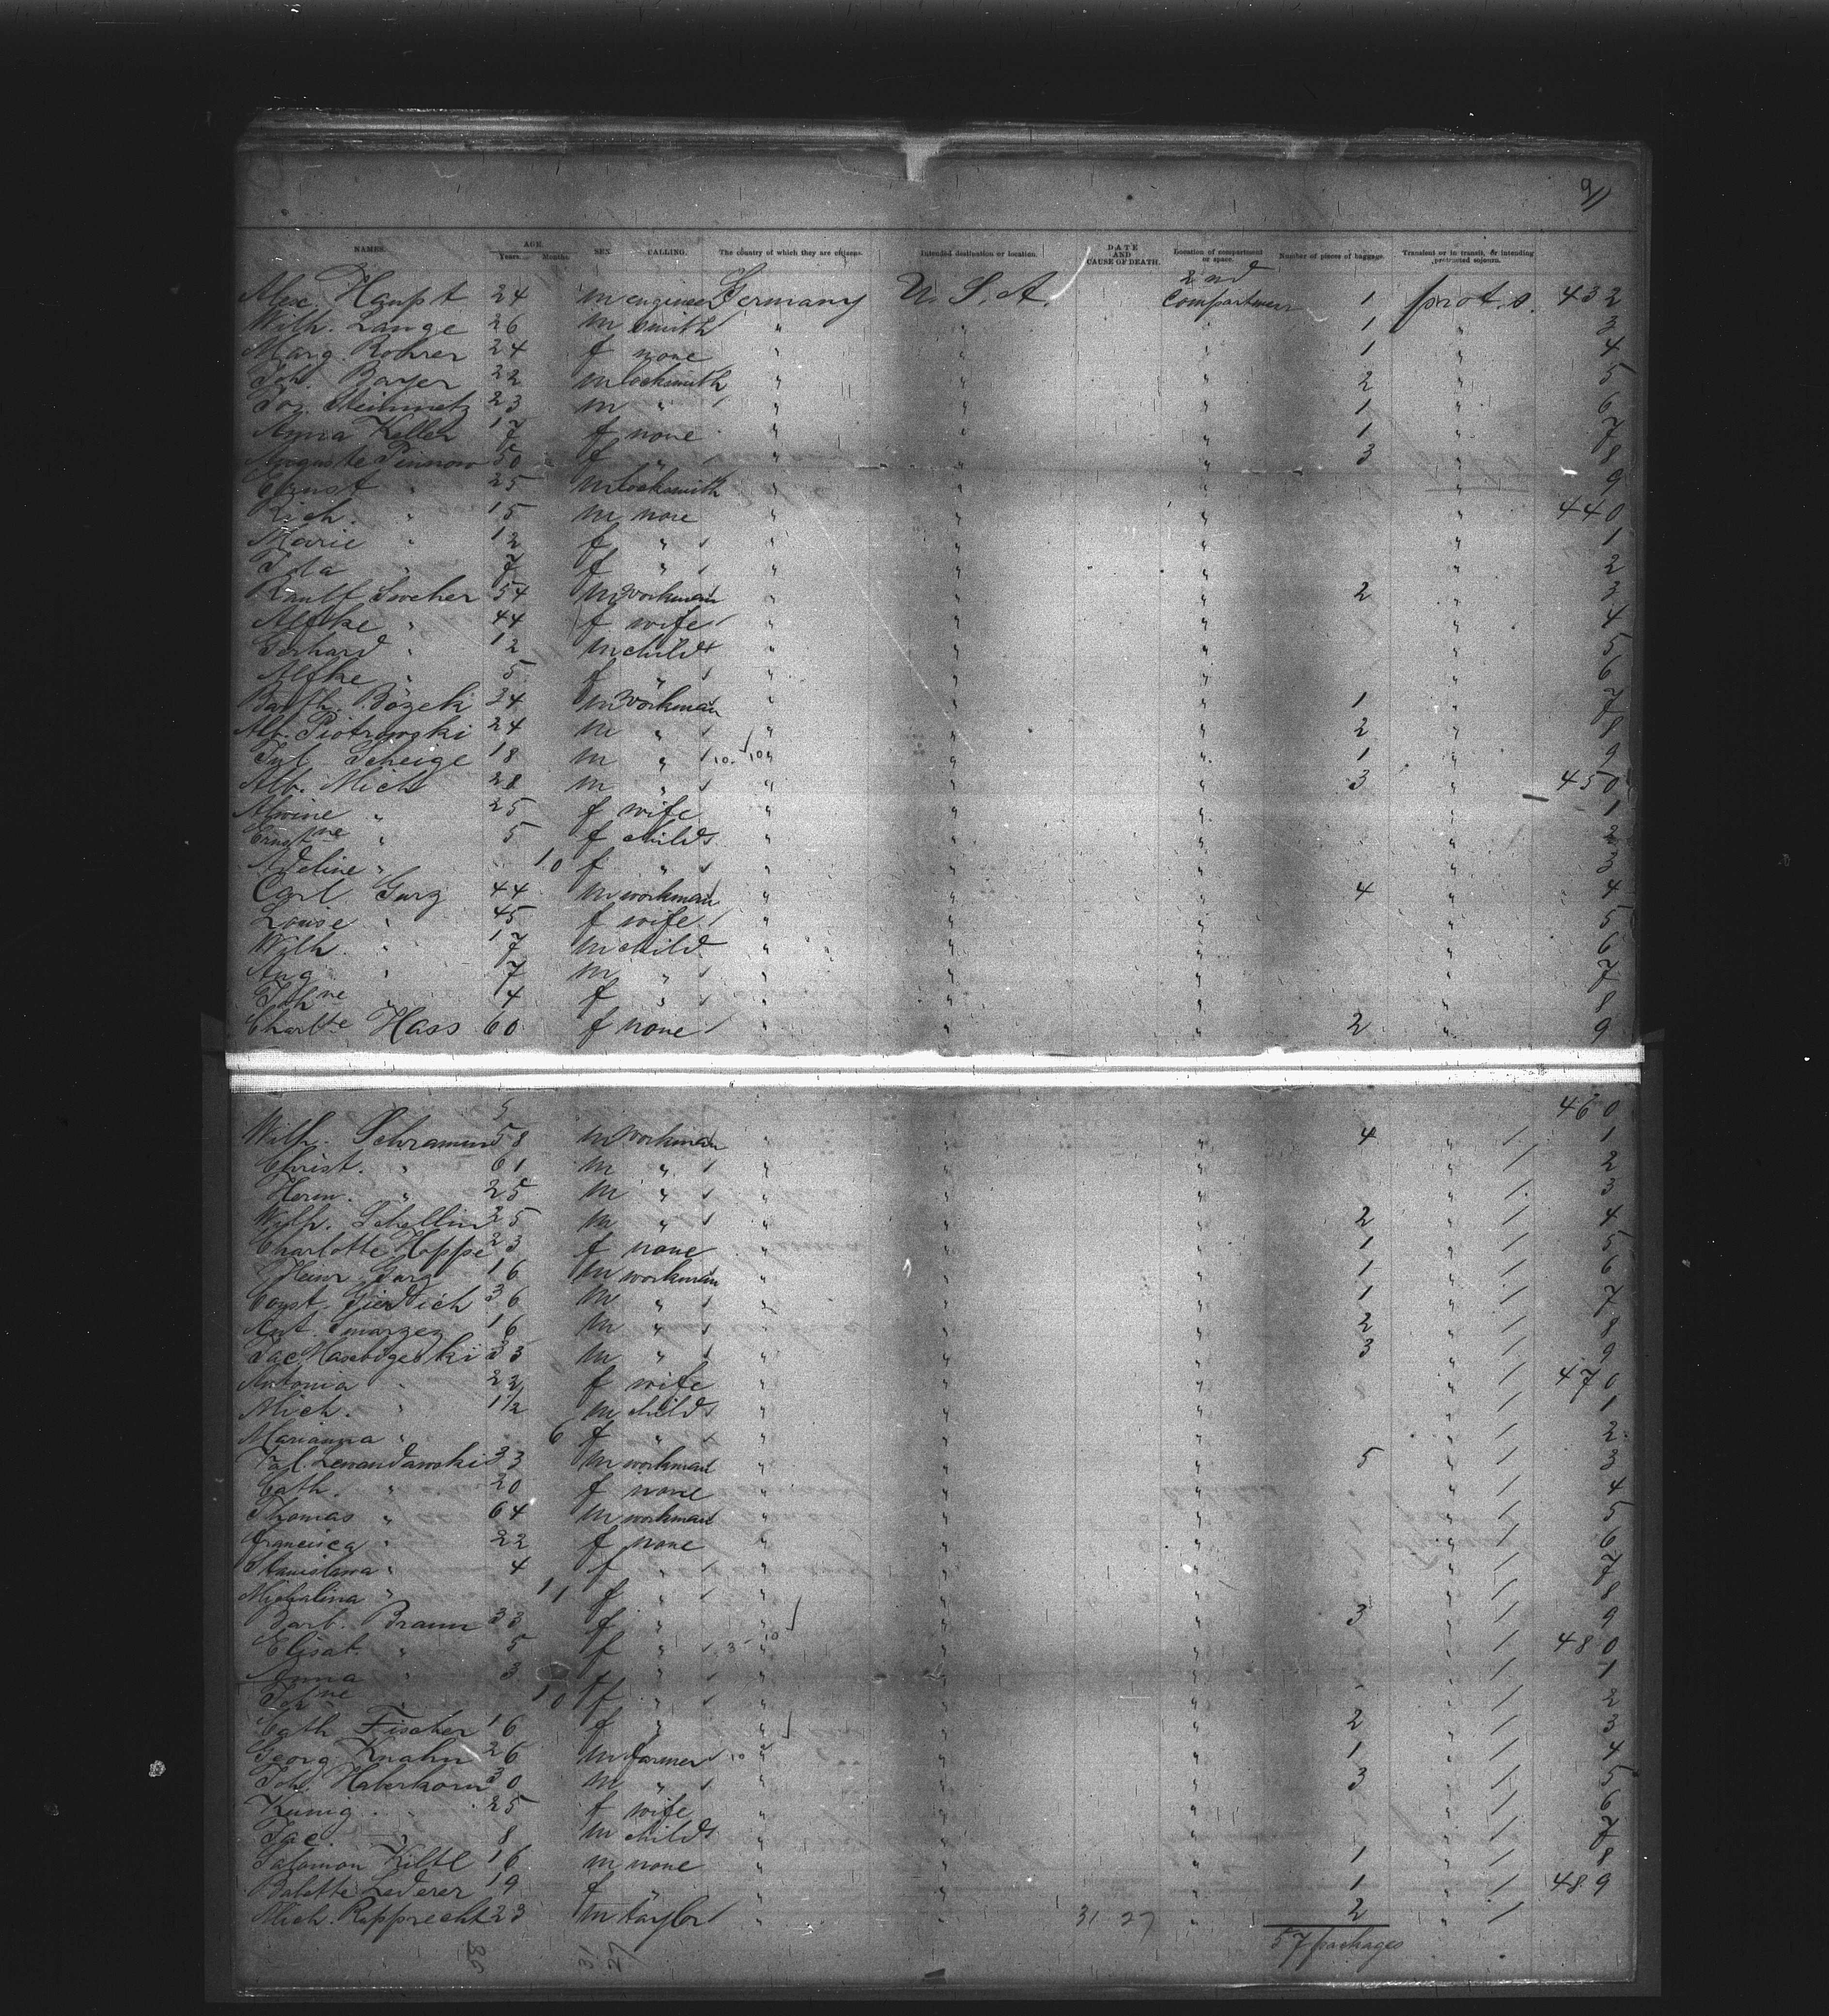 91
NAMES. AGE. Years. Months. SEX. CALLING. The country of which they are citizens. Intended destination or location. DATE AND CAUSE OF DEATH. Location of compartment or space. Number of pieces of baggage. Transient or in transit, or intending protracted sojourn.
Alex. Haupt 24 m engineer Germany U. S. A. 2nd Compartment 1 prot. s. 432
Wilh. Lange 26 m smith " " " 1 " 3
Marg. Rohrer 24 f none " " " 1 " 4
Joh. Bayer 22 m locksmith " " " 2 " 5
Jos. Steinmetz 23 m " " " " 1 " 6
Anna Keller 17 f none " " " 1 " 7
Auguste Pinnow 50 f " " " " 3 " 8
Ernst " 25 m locksmith " " " " 9
Rich. " 15 m none " " " " 440
Marie " 12 f " " " " " 1
Ida " 7 f " " " " " 2
54 m workman " " " 2 " 3
" 44 f wife " " " " 4
Gerhard " 12 m child " " " " 5
" 5 f " " " " " 6
Barth. Bozek 24 m workman " " " 1 " 7
Alb. Piotrowski 24 m " " " " 2 " 8
Jul. Scheige 18 m " 10 10 " " " 1 " 9
Alb. Mich 28 m " " " " 3 " 450
Alwine " 25 f wife " " " " 1
Ernstne " 5 f child " " " " 2
Adeline " 10 f " " " " " 3
Carl Gurz 44 m workman " " " 4 " 4
Louise " 45 f wife " " " " 5
Wilh. " 17 m child " " " " 6
Aug. " 7 m " " " " " 7
Johne " 4 f " " " " " 8
Charltte Hass 60 f none " " " 2 " 9
460
Wilh. Schramm 58 m workman " " " 4 " / 1
Christ. " 61 m " " " " " / 2
Herm. " 25 m " " " " " / 3
Wilh. Schellin 25 m " " " " 2 " / 4
Charlotte Hoppe 23 f none " " " 1 " / 5
Heinr. Gurz 16 m workman " " " 1 " / 6
Const. 36 m " " " " 1 " / 7
Ant. 16 m " " " " 2 " / 8
Jac. 33 m " " " " 3 " / 9
Antonia " 22 f wife " " " " / 470
Mich. " 1 1/2 m child " " " " / 1
Marianna " 6 f " " " " " / 2
Val. Lewandawski 33 m workman " " " 5 " / 3
Cath. " 20 f none " " " " / 4
Thomas " 64 m workman " " " " / 5
Francisca " 22 f none " " " " / 6
Stanislawa " 4 f " " " " " / 7
Michalina " 11 f " " " " " / 8
Barb. Braun 33 f " " " " 3 " / 9
Elisab. " 5 f " 3 10 " " " " / 480
Anna " 3 f " " " " " / 1
Johne " 10 f " " " " " / 2
Cath. Fischer 16 f " " " " 2 " / 3
Georg Knahn 26 m farmer 10 " " " 1 " / 4
Joh. Haberkorn 30 m " " " " 3 " / 5
Kunig. " 25 f wife " " " " / 6
Jac. " 8 m child " " " " / 7
Salomon Kiltl 16 m none " " " 1 " / 8
Babette Lederer 19 f " " " " 1 " / 489
Mich. Rupprecht 23 m taylor " " 31 27 " 2 " /
31 27 57 packages